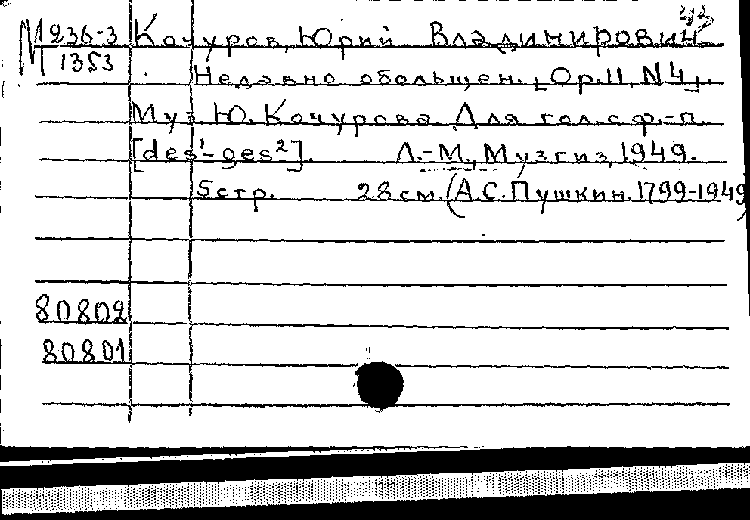 М 236-3 Кочуров, Юрий Владимирович
1353 Недавно обольщен. [Ор.11, N4].
Муз. Ю. Кочурова. Для гол. с ф.-п.
[des¹-ges²]. Л.-М., Музгиз, 1949.
5 стр. 28 см. (А.С. Пушкин. 1799-1949)
80802
80801